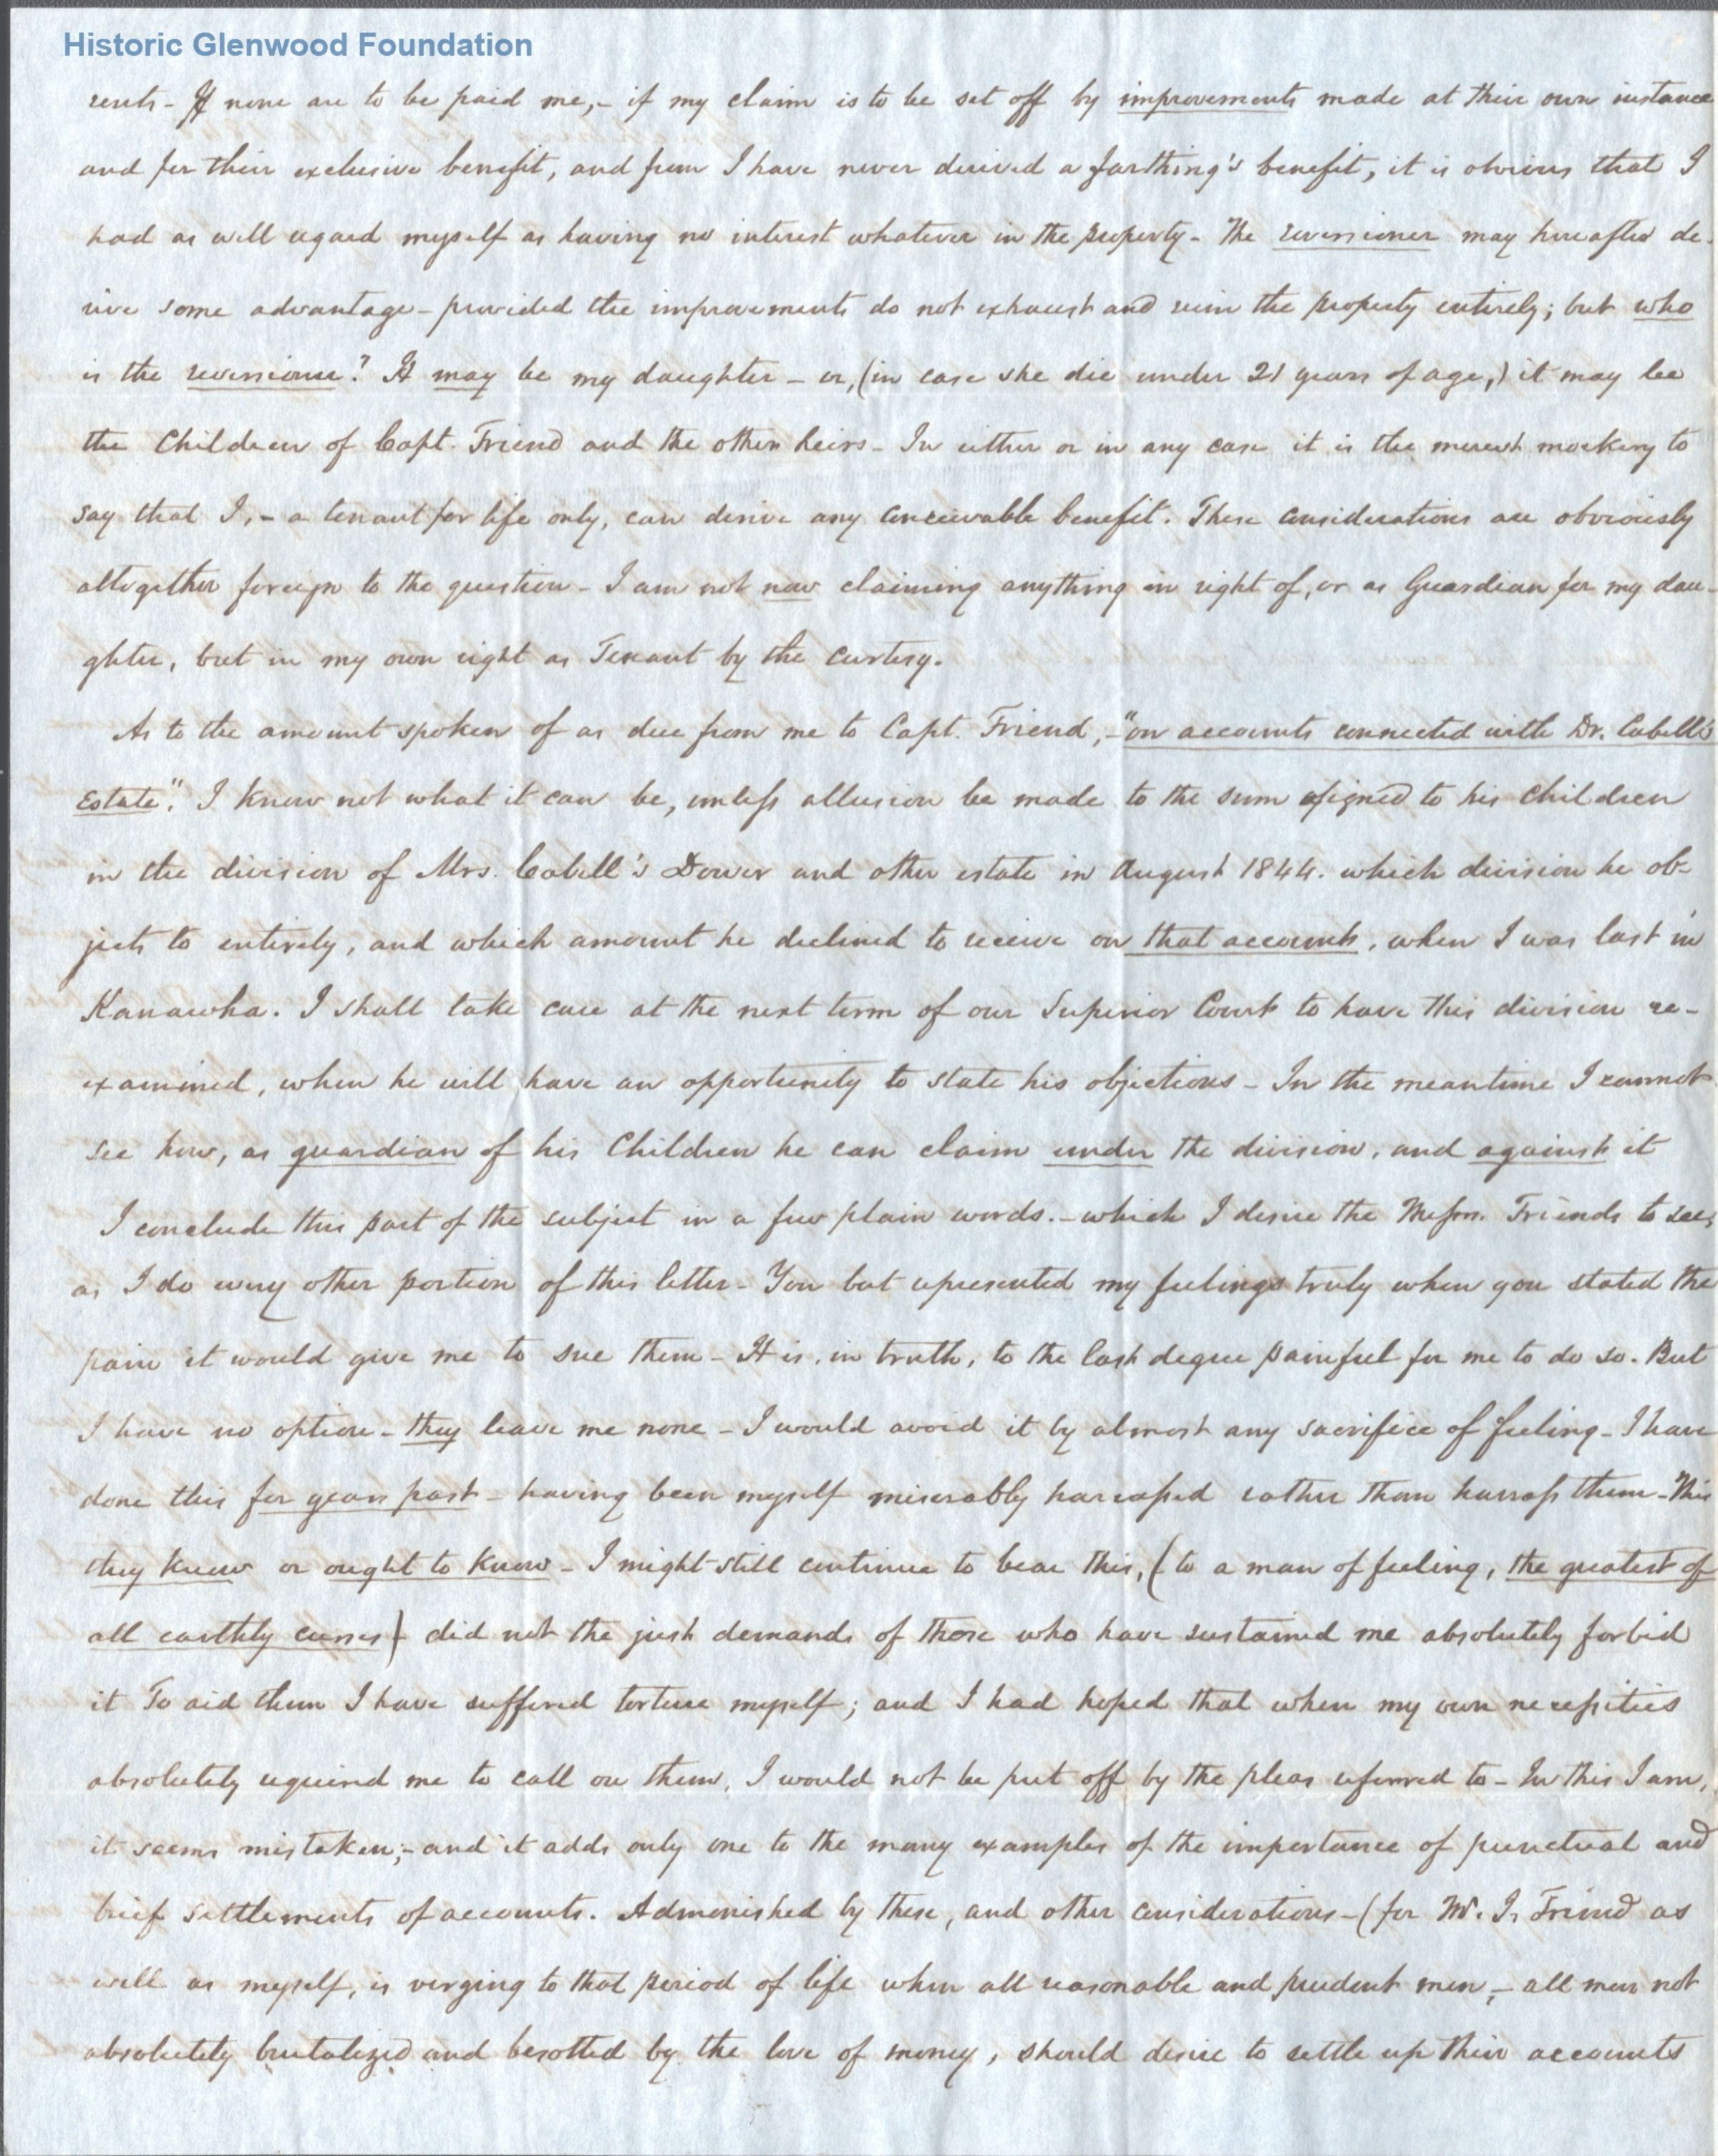 Historic Glenwood Foundation
rents - If none are to be paid me, - if my claim is to be set off by improvements made at their own instance
and for their exclusive benefit, and from I have never derived a farthing's benefit, it is obvious that I
had as well regard myself as having no interest whatever in the property - The reversioner may hereafter de-
rive some advantage - provided the improvements do not exhaust and ruin the property entirely; but who
is the reversioner? It may be my daughter - or, (in case she die under 21 years of age,) it may be
the Children of Capt. Friend and the other heirs - In either or in any case it is the merest mockery to
say that I, - a tenant for life only, can derive any conceivable benefit. These considerations are obviously
altogether foreign to the question - I am not now claiming anything in right of, or as Guardian for my dau-
ghter, but in my own right as Tenant by the Curtesy.
As to the amount spoken of as due from me to Capt. Friend, - "on accounts connected with Dr. Cabell's
Estate". I know not what it can be, unless allusion be made to the sum assigned to his children
in the division of Mrs. Cabell's Dower and other estate in August 1844. which division he ob-
jects to entirely, and which amount he declined to receive on that account, when I was last in
Kanawha. I shall take care at the next term of our Superior Court to have this division re-
examined, when he will have an opportunity to state his objections - In the meantime I cannot
see how, as guardian of his Children he can claim under the division, and against it
I conclude this part of the subject in a few plain words. - which I desire the Messrs. Friends to see,
as I do every other portion of this letter - You but represented my feelings truly when you stated the
pain it would give me to sue them - It is, in truth, to the last degree painful for me to do so. But
I have no option - they leave me none - I would avoid it by almost any sacrifice of feeling - I have
done this for years past - having been myself miserably harrassed rather than harrass them - This
they know or ought to know - I might still continue to bear this, (to a man of feeling, the greatest of
all earthly curses) - did not the just demands of those who have sustained me absolutely forbid
it To aid them I have suffered torture myself; and I had hoped that when my own necessities
absolutely required me to call on them, I would not be put off by the pleas referred to - In this I am,
it seems mistaken; - and it adds only one to the many examples of the importance of punctual and
brief settlements of accounts. Admonished by these, and other considerations - (for Mr. J. Friend as
well as myself, is verging to that period of life when all reasonable and prudent men, - all men not
absolutely brutalized and besotted by the love of money, should desire to settle up their accounts